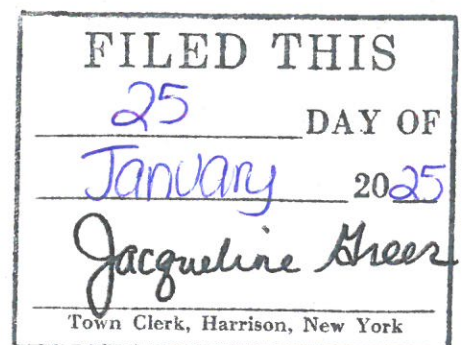 FILED THIS
25 DAY OF
January 2025
Jacqueline Greer
Town Clerk, Harrison, New York